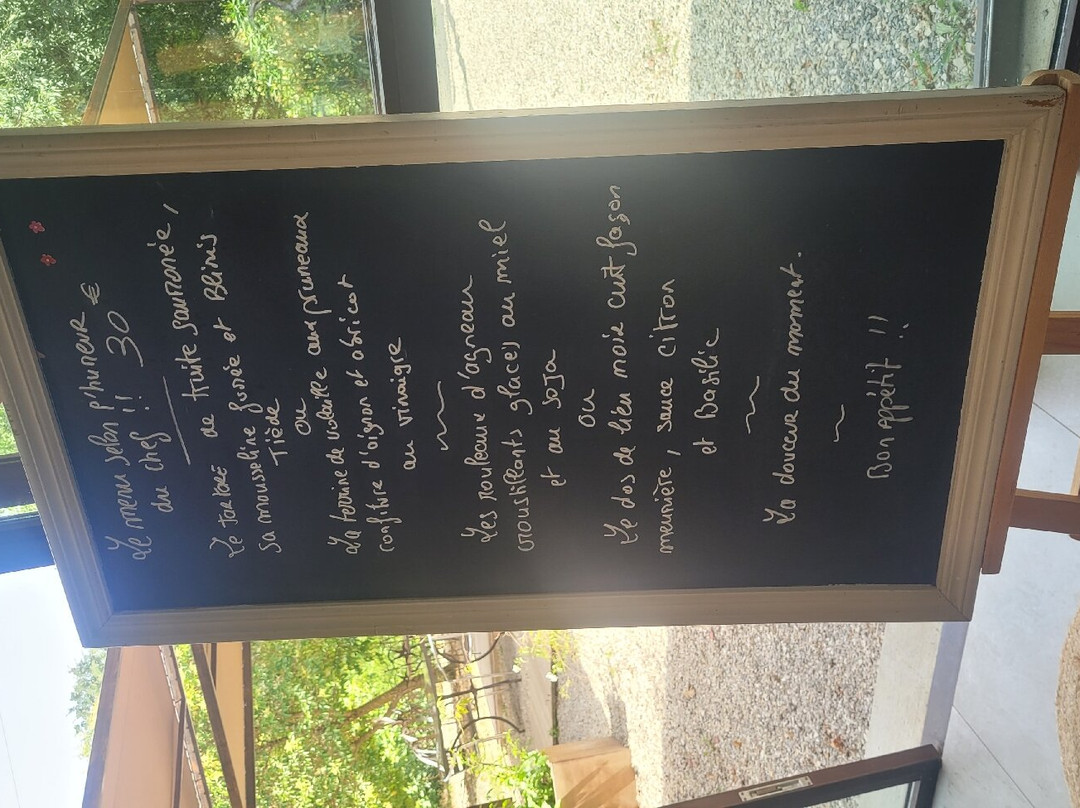 Le menu selon l'humeur
du chef !! 30 €
Le tartare de truite saumonée,
sa mousseline fumée et Blinis
Tiède
ou
La terrine de volaille aux pruneaux
confiture d'oignon et abricot
au vinaigre
Les rouleaux d'agneau
croustillants glacés au miel
et au soja
ou
Le dos de lieu noir cuit façon
meunière, sauce citron
et Basilic
La douceur du moment.
Bon appétit !!